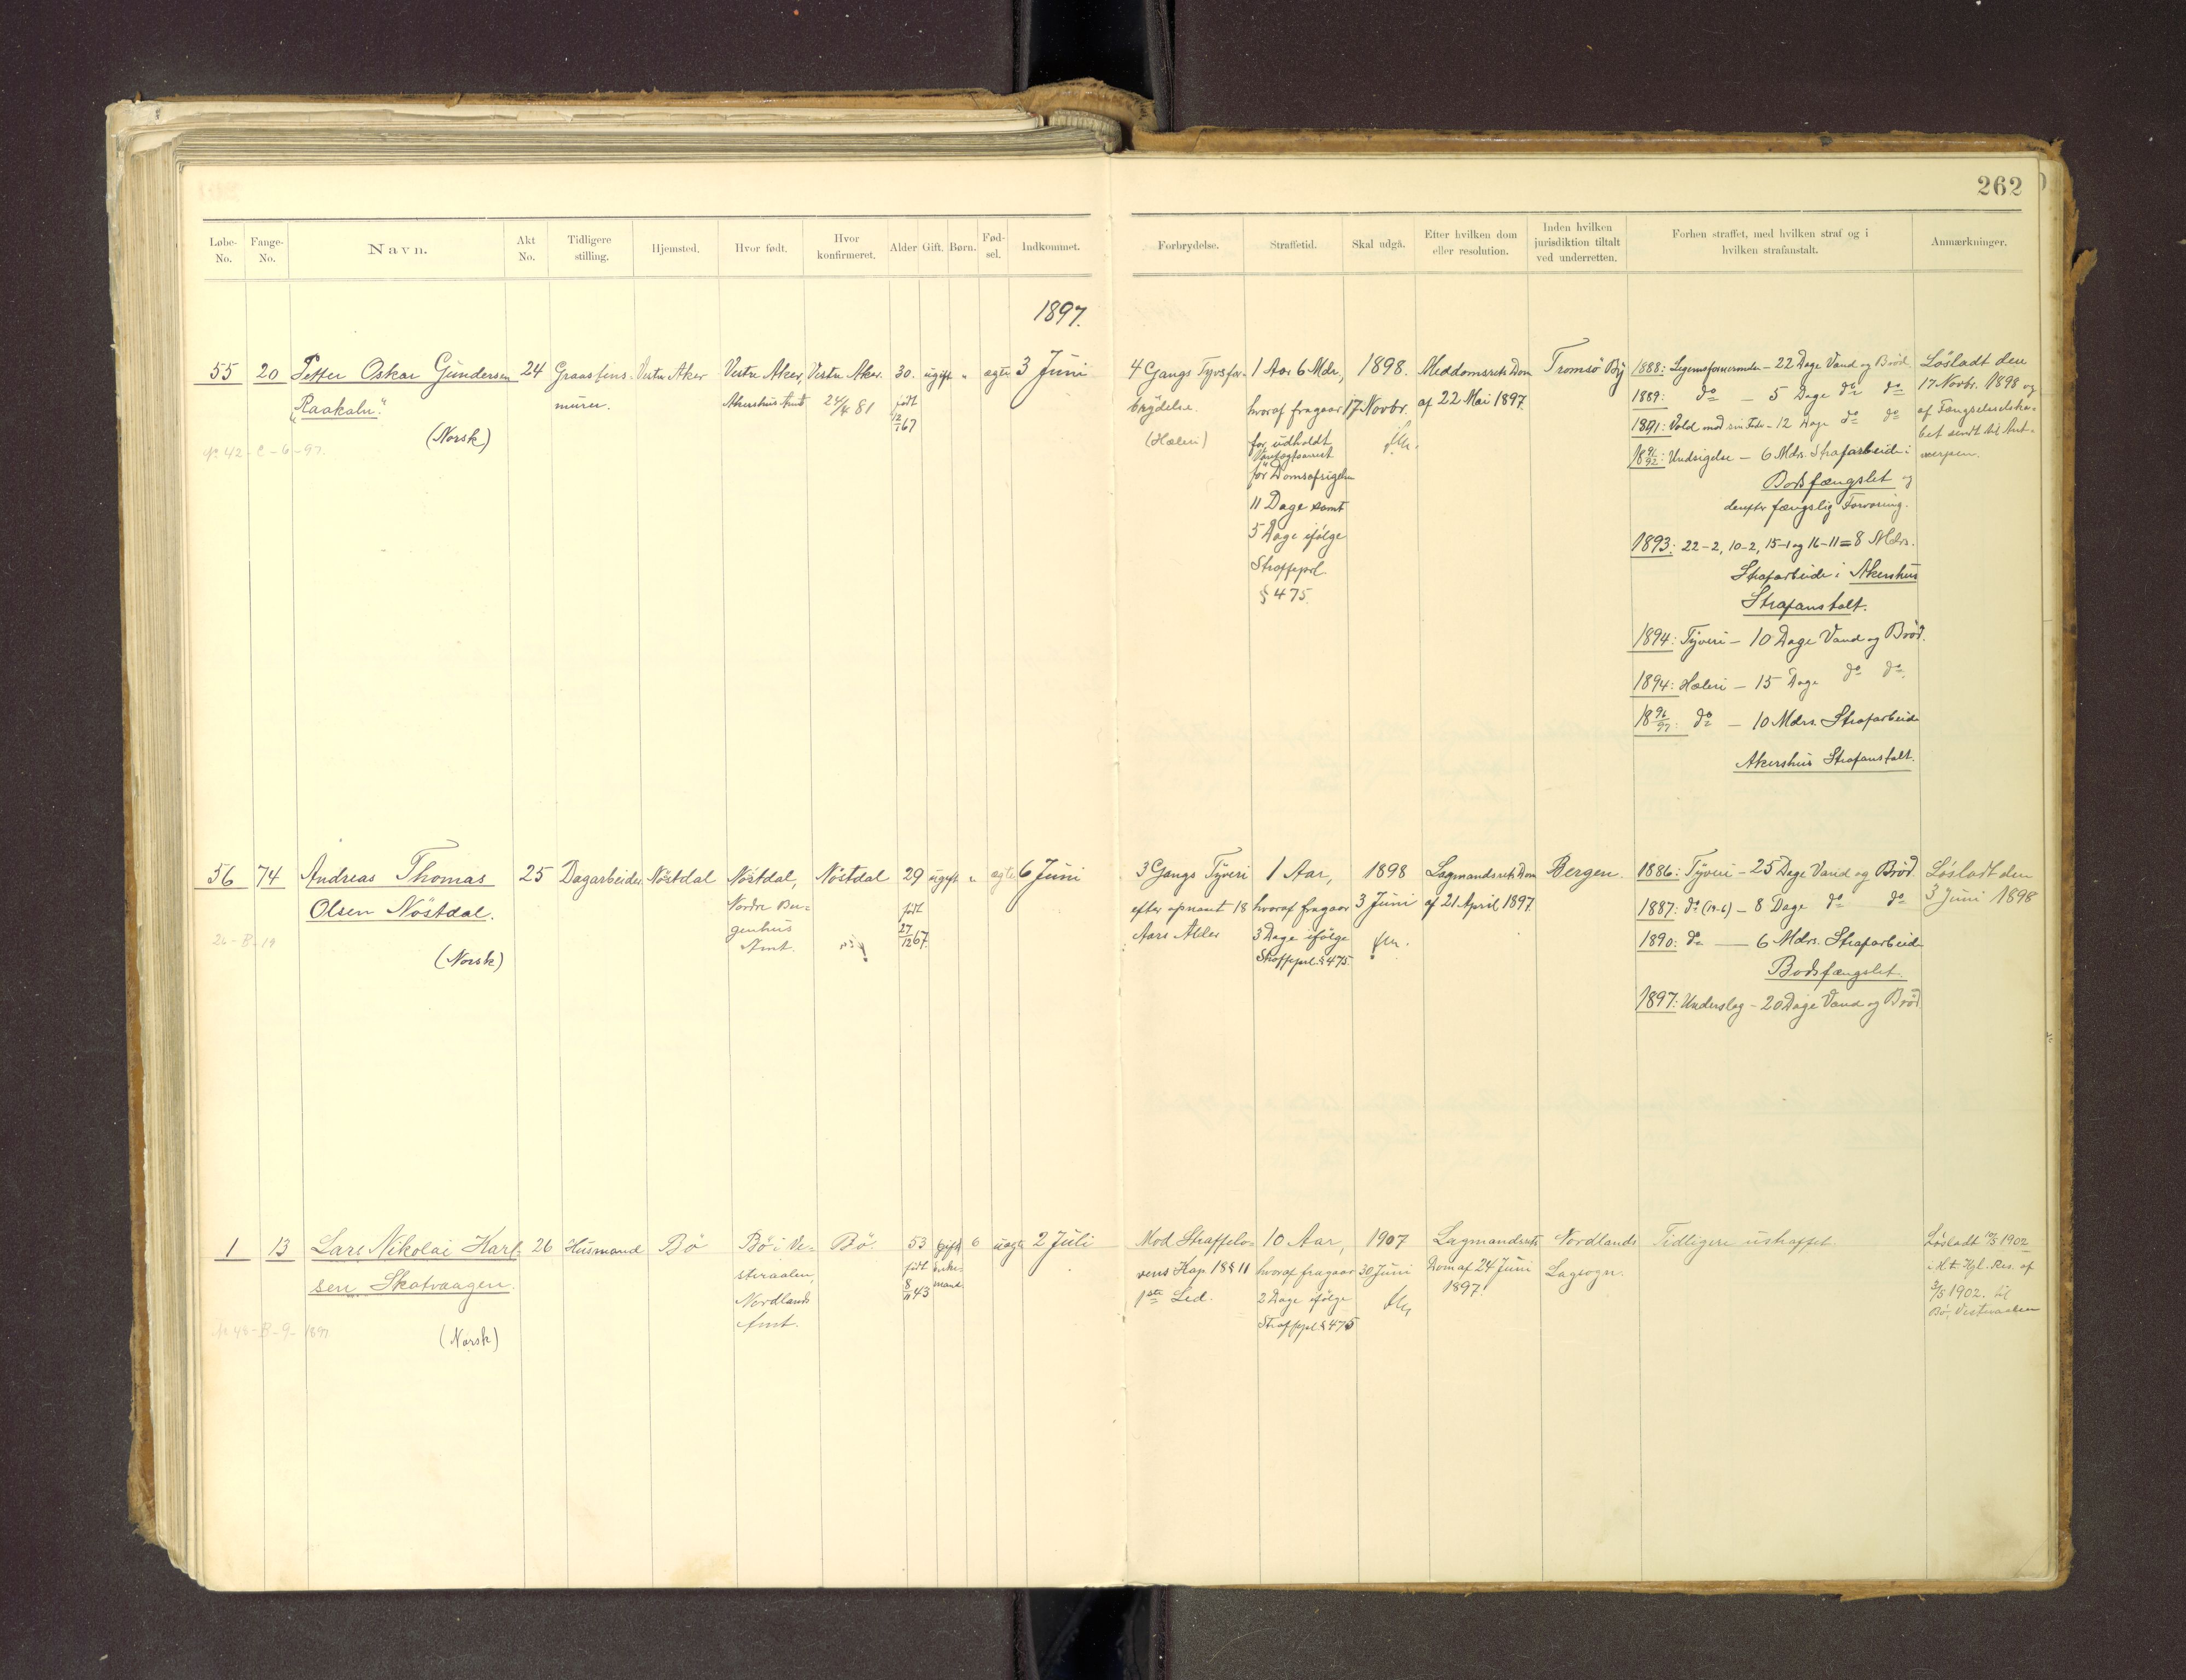 262
Løbe-No.
Fange-No.
Navn.
Akt No.
Tidligere stilling.
Hjemsted.
Hvor født.
Hvor konfirmeret.
Alder
Gift.
Børn.
Fød-sel.
Indkommet.
Forbrydelse.
Straffetid.
Skal udgå.
Efter hvilken dom eller resolution.
Inden hvilken jurisdiktion tiltalt ved underretten.
Forhen straffet, med hvilken straf og i hvilken strafanstalt.
Anmærkninger.
1897.
55
20
Petter Oskar Gundersen
"Raakalv."
(Norsk)
No 42-C-6-97.
24
Graastens-
murer.
Vestre Aker
Vestre Aker,
Akershus Amt
Vestre Aker.
24/4 81
30.
født
12/1 67
ugift
"
ægte
3 Juni
4 Gangs Tyvsfor-
brydelse.
(Hæleri)
1 Aar 6 Mdr.,
hvoraf fragaar
for udholdt
Varetægtsarrest
før Domsafsigelsen
11 Dage samt
5 Dage ifølge
Straffeprl.
§ 475.
1898.
17 Novbr.
Meddomsrets Dom
af 22 Mai 1897.
Tromsö By
1888: Legemsfornærmelse - 22 Dage Vand og Brød.
1889: do - 5 Dage do do
1891: Vold mod sin Fader - 12 Dage do do
1891/92: Undsigelse - 6 Mdrs. Strafarbeide i
Bodsfængslet og
derefter fængslig Forvaring.
1893: 22-2, 10-2, 15-1 og 16-11 = 8 Mdrs.
Strafarbeide i Akershus
Strafanstalt.
1894: Tyveri - 10 Dage Vand og Brød.
1894: Hæleri - 15 Dage do do.
1896/97: do - 10 Mdrs. Strafarbeide
Akershus Strafanstalt.
Løsladt den
17 Novbr. 1898 og
af Fængselsselska-
bet sendt til Ant-
werpen.
56
74
Andreas Thomas
Olsen Nöstdal.
(Norsk)
25
Dagarbeider
Nöstdal
Nöstdal,
Nordre Ber-
genhus
Amt.
Nöstdal
29
født
27/12 67.
ugift
"
ægte
6 Juni
3 Gangs Tyveri
efter opnaaet 18
Aars Alder
1 Aar,
hvoraf fragaar
3 Dage ifølge
Straffeprl. § 475.
1898
3 Juni
Lagmandsrets Dom
af 21 April 1897.
Bergen.
1886: Tyveri - 25 Dage Vand og Brød.
1887: do (19-6) - 8 Dage do do
1890: do - 6 Mdrs. Strafarbeide
Bodsfængslet.
1897: Underslag - 20 Dage Vand og Brød
Løsladt den
3 Juni 1898
1
13
Lars Nikolai Karl-
sen Skatvaagen.
(Norsk)
26
Husmand
Bö
Bö i Ve-
steraalen,
Nordlands
Amt.
Bö.
53
født
8/11 43
gift
Enke-
mand
6
uægte
2 Juli
Mod Straffelo-
vens Kap. 18 § 11
1ste Led.
10 Aar,
hvoraf fragaar
2 Dage ifølge
Straffeprl. § 475
1907
30 Juni
Lagmandsrets
Dom af 24 Juni
1897.
Nordlands
Lagsogn.
Tidligere ustraffet.
Løsladt 10/5 1902
i H. t. Kgl. Res. af
3/5 1902. til
Bö, Vesteraalen